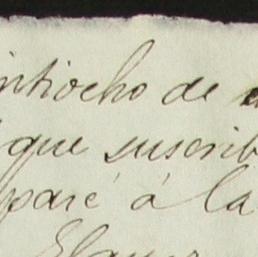 intiocho de
que suscrib
paré á la